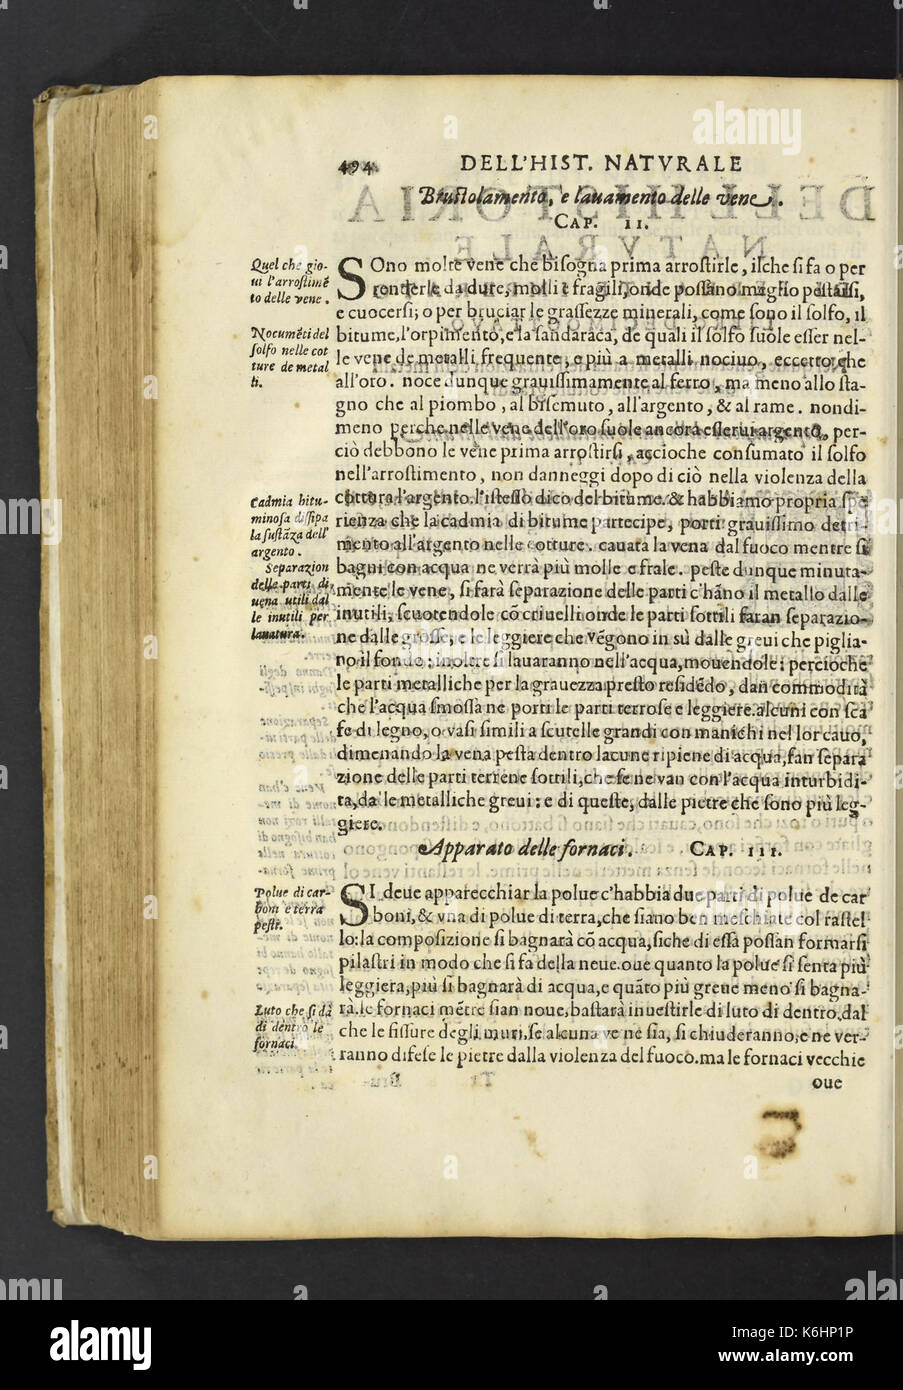 494 DELL'HIST. NATVRALE
Brustolamento, e lauamento delle vene.
CAP. II.
Quel che gio-
ui l'arrostimẽ
to delle vene.
Nocumẽti del
solfo nelle cot
ture de metal
li.
Cadmia bitu-
minosa dissipa
la sustãza dell'
argento.
Separazion
delle parti di
uena utili dal
le inutili per
lauatura.
SOno molte vene che bisogna prima arrostirle, ilche si fa o per
renderle da dure, molli e fragili, onde possano meglio pestarsi,
e cuocersi; o per bruciar le grassezze minerali, come sono il solfo, il
bitume, l'orpimento, e la sandaraca, de quali il solfo suole esser nel-
le vene de metalli frequente, e più a metalli nociuo, eccetto che
all'oro. noce dunque grauissimamente al ferro, ma meno allo sta-
gno che al piombo, al bisemuto, all'argento, & al rame. nondi-
meno perche nelle vene dell'oro suole ancora esserui argento, per-
ciò debbono le vene prima arrostirsi, accioche consumato il solfo
nell'arrostimento, non danneggi dopo di ciò nella violenza della
cottura l'argento. l'istesso dico del bitume. & habbiamo propria spe
rienza che la cadmia di bitume partecipe, porti grauissimo detri-
mento all'argento nelle cotture. cauata la vena dal fuoco mentre si
bagni con acqua ne verrà più molle e frale. peste dunque minuta-
mente le vene, si farà separazione delle parti c'hãno il metallo dalle
inutili, scuotendole cõ criuelli onde le parti sottili faran separazio-
ne dalle grosse, e le leggiere che vẽgono in sù dalle greui che piglia-
no il fondo: inoltre si lauaranno nell'acqua, mouendole: percioche
le parti metalliche per la grauezza presto residẽdo, dan commodità
che l'acqua smossa ne porti le parti terrose e leggiere. alcuni con sca
fe di legno, o vasi simili a scutelle grandi con manichi nel lor cauo,
dimenando la vena pesta dentro lacune ripiene di acqua, fan separa
zione delle parti terrene sottili, che se ne van con l'acqua inturbidi-
ta, da le metalliche greui: e di queste, dalle pietre che sono più leg-
giere.
Apparato delle fornaci. CAP. III.
Polue di car-
boni e terra
peste.
Luto che si dà
di dentro le
fornaci.
SI deue apparecchiar la polue c'habbia due parti di polue de car
boni, & vna di polue di terra, che siano ben meschiate col rastel-
lo: la composizione si bagnarà cõ acqua, siche di essa possan formarsi
pilastri in modo che si fa della neue. oue quanto la polue si senta più
leggiera, più si bagnarà di acqua, e quãto più greue meno si bagna-
rà. le fornaci mẽtre sian noue, bastarà inuestirle di luto di dentro, dal
che le fissure degli muri, se alcuna ve ne sia, si chiuderanno, e ne ver-
ranno difese le pietre dalla violenza del fuoco. ma le fornaci vecchie
oue
alamy
K6HP1P
www.alamy.com